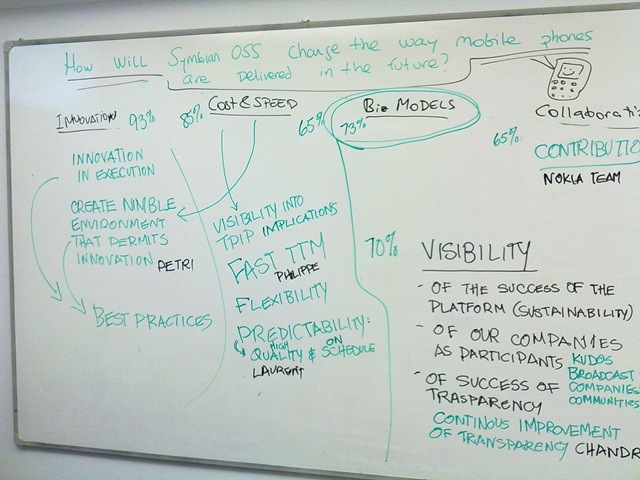 HOW WILL SYMBIAN OSS CHANGE THE WAY MOBILE PHONES
ARE DELIVERED IN THE FUTURE?
INNOVATION 93%
INNOVATION
IN EXECUTION
CREATE NIMBLE
ENVIRONMENT
THAT PERMITS
INNOVATION PETRI
BEST PRACTICES
85% COST & SPEED
VISIBILITY INTO
TPIP IMPLICATIONS
FAST TTM
PHILIPPE
FLEXIBILITY
PREDICTABILITY:
HIGH ON
QUALITY & SCHEDULE
LAURENT
65% 73% BIZ MODELS
65%
COLLABORATI
CONTRIBUTIO
NOKIA TEAM
70% VISIBILITY
- OF THE SUCCESS OF THE
PLATFORM (SUSTAINABILITY)
- OF OUR COMPANIES
AS PARTICIPANTS KUDOS
BROADCAST
COMPANIES
COMMUNITIES
- OF SUCCESS OF
TRASPARENCY
CONTINOUS IMPROVEMENT
OF TRANSPARENCY CHANDR